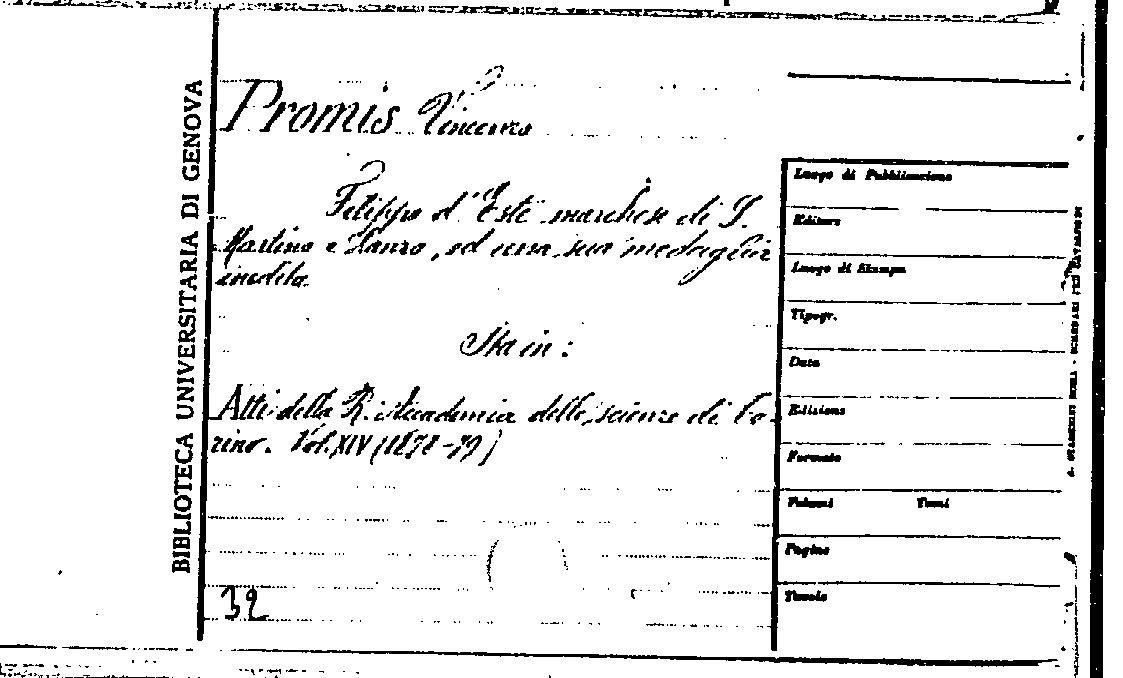 BIBLIOTECA UNIVERSITARIA DI GENOVA
Promis Vincenzo
Filippo d'Este marchese di S.
Martino e Lanzo, ed una sua medaglia
inedita
Sta in:
Atti della R. Accademia delle scienze di To-
rino. Vol. XIV (1878-79)
32
Luogo di Pubblicazione
Editore
Luogo di Stampa
Tipogr.
Data
Edizione
Formato
Volumi Tomi
Pagine
Tavole